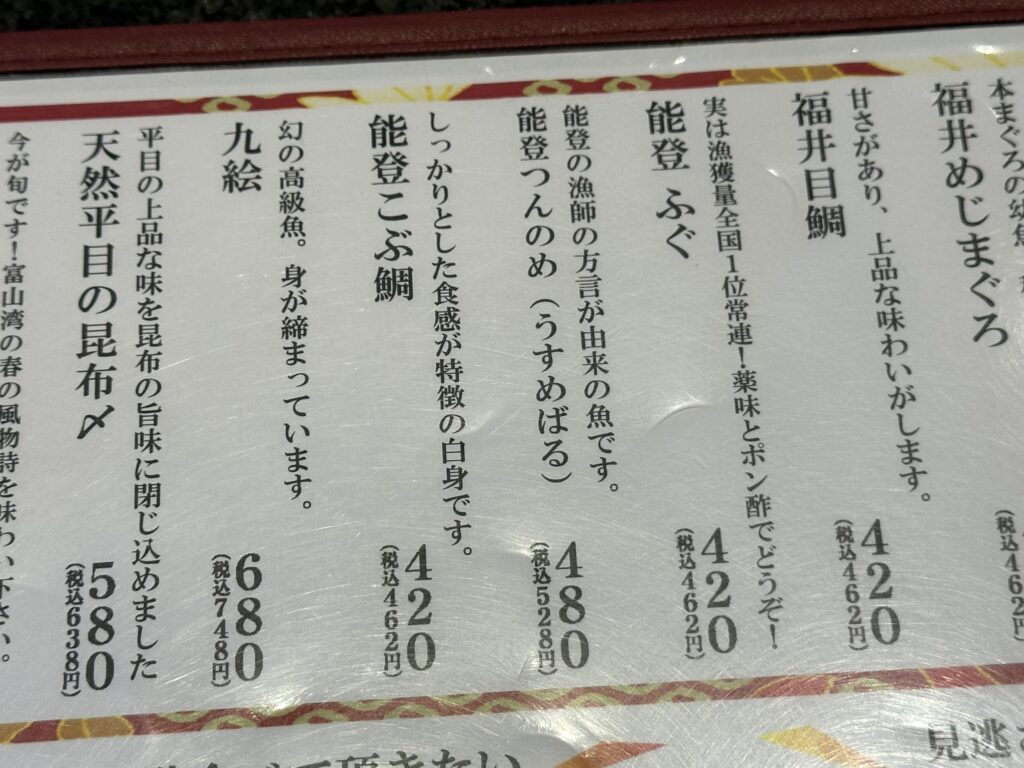 本まぐろの幼魚
福井めじまぐろ
(税込462円)
甘さがあり、上品な味わいがします。
福井目鯛
420
(税込462円)
実は漁獲量全国1位常連!薬味とポン酢でどうぞ!
能登 ふぐ
420
(税込462円)
能登の漁師の方言が由来の魚です。
能登つんのめ(うすめばる)
480
(税込528円)
しっかりとした食感が特徴の白身です。
能登こぶ鯛
420
(税込462円)
幻の高級魚。身が締まっています。
九絵
680
(税込748円)
平目の上品な味を昆布の旨味に閉じ込めました
天然平目の昆布〆
580
(税込638円)
今が旬です!富山湾の春の風物詩を味わい下さい。
見逃
頂きたい